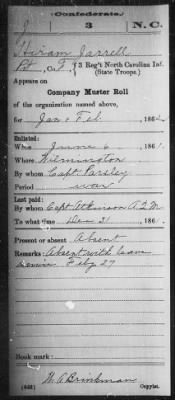 Confederate.
J 3 N.C.
Hiram Jarrell
Pvt, Co. F, 3 Reg't North Carolina Inf.
(State Troops.)
Appears on
Company Muster Roll
of the organization named above,
for Jan & Feb, 186
Enlisted:
When June 6, 186
Where Wilmington
By whom Capt. Parsley
Period war
Last paid:
By whom Capt Atkinson A.Q.M.
To what time Dec 31, 186
Present or absent Absent
Remarks: Absent with leave
since Feby 27
Book mark:
W. A. Brinkman
(642) Copyist.